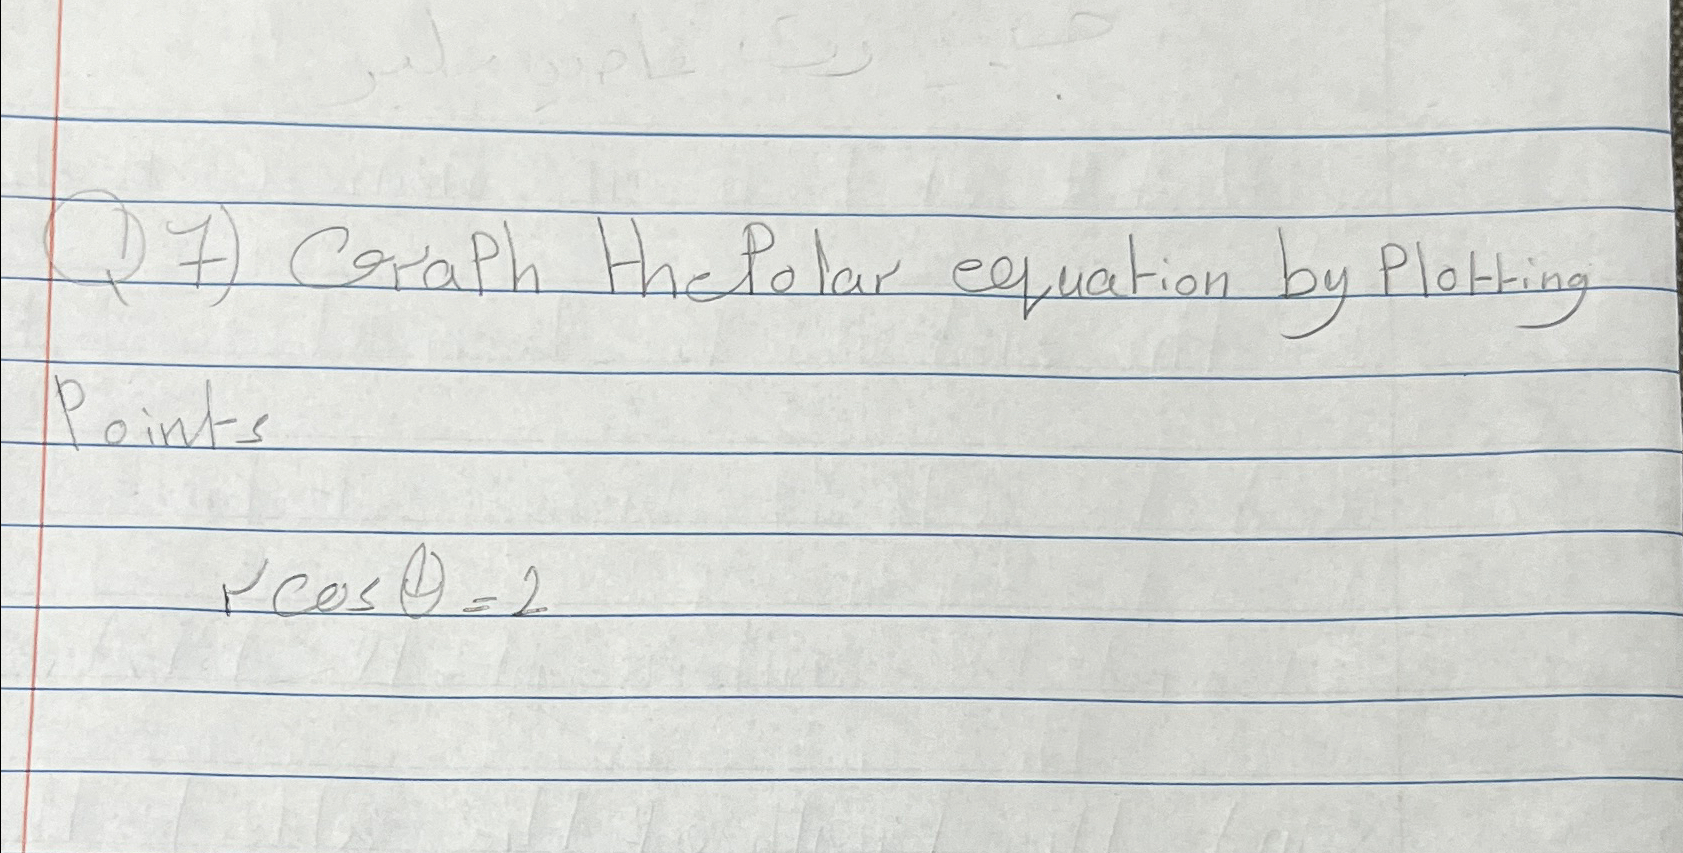 Q7) Graph the Polar equation by Plotting
Points
r cos θ = 2